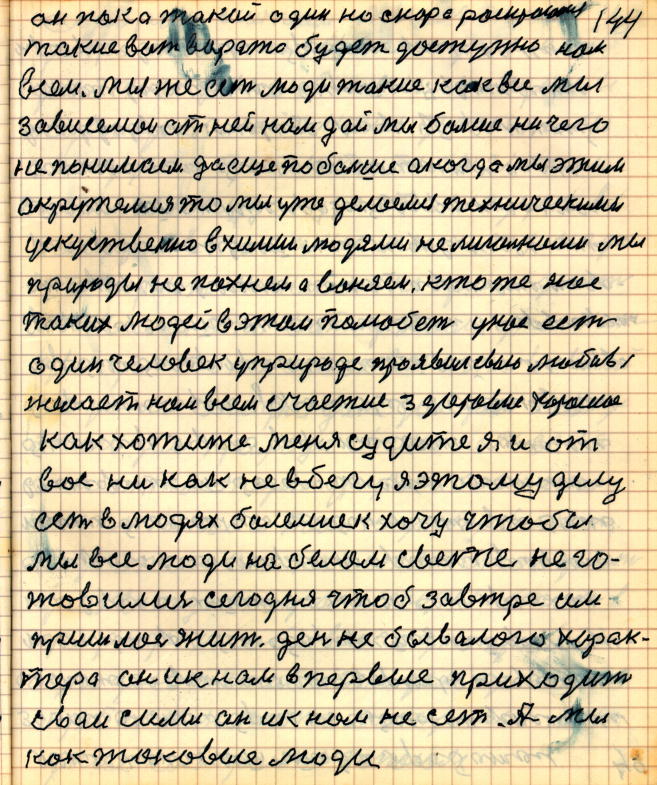 он пока такой один но скоро роскроются 144
такие ват варата будет доступно нам
всем. мы же ест люди такие как все мы
зависемыи от ней нам дай мы болше ничего
не понимаем. да еще по болше а когда мы этим
окружемся то мы уже делаемся техническими
искуственно в химии людями нелигалними мы
природы не пахнем а воняем. кто же нас
таких людей в этом полюбет у нас ест
один человек у природе проявил свою любов/
желает нам всем счастие здоровие хорошое
как хотите меня судите я и от
вас ни как не вбегу, я этому делу
сет в людях болелщик хочу чтобы
мы все люди на белом свете не го-
товилися сегодня чтоб завтре им
пришлос жит. ден не бывалого харак-
тера он ик нам впервые приходит
сваи сили он ик нам не сет. А мы
как таковые люди